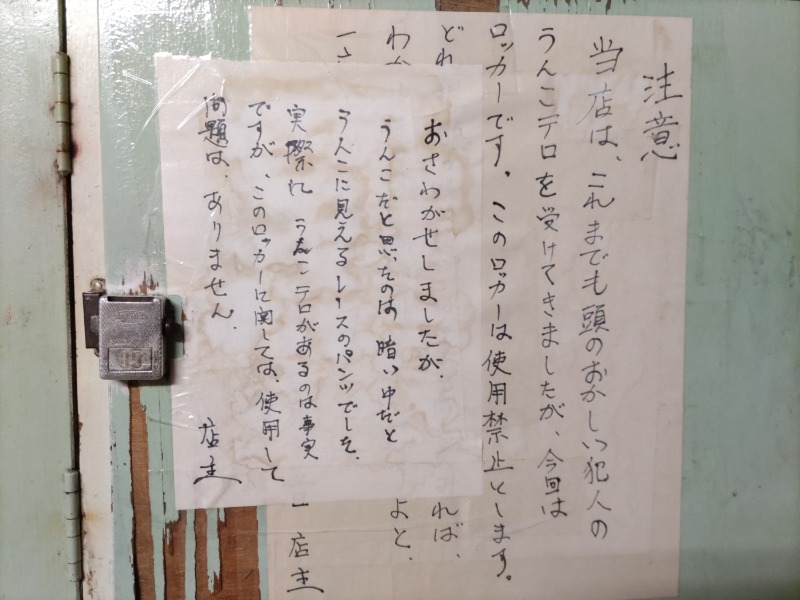 注意
当店は、これまでも頭のおかしい犯人の
うんこテロを受けてきましたが、今回は
ロッカーです。このロッカーは使用禁止とします。
どれ
れば、
わか
よと、
一
店主
おさわがせしましたが、
うんこだと思ったのは暗い中だと
うんこに見えるレースのパンツでした。
実際に うんこテロがあるのは事実
ですが、このロッカーに関しては、使用して
問題は、ありません。
店主